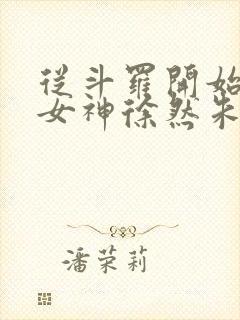 從斗羅開始
女神徐然朱
潘荣莉